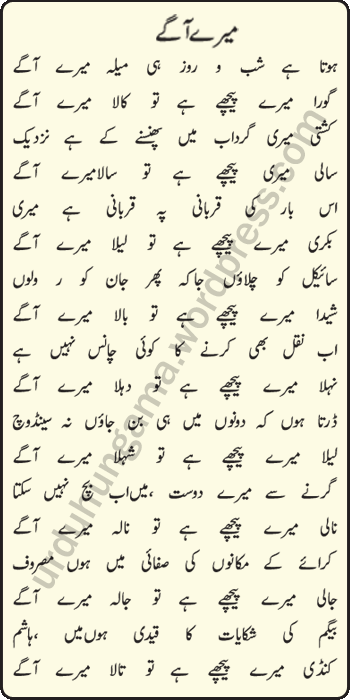 میرے آگے
ہوتا ہے شب و روز ہی میلہ میرے آگے
گورا میرے پیچھے ہے تو کالا میرے آگے
کشتی میری گرداب میں پھنسنے کے ہے نزدیک
سالی میری پیچھے ہے تو سالامیرے آگے
اس بار کی قربانی پہ قربانی ہے میری
بکری میرے پیچھے ہے تو لیلا میرے آگے
سائیکل کو چلاؤں جاکہ پھر جان کو ر ولوں
شیدا میرے پیچھے ہے تو بالا میرے آگے
اب نقل بھی کرنے کا کوئی چانس نہیں ہے
نہلا میرے پیچھے ہے تو دہلا میرے آگے
ڈرتا ہوں کہ دونوں میں ہی بن جاؤں نہ سینڈوچ
لیلا میرے پیچھے ہے تو شہلا میرے آگے
گرنے سے میرے دوست ،میںاب بچ نہیں سکتا
نالی میرے پیچھے ہے تو نالہ میرے آگے
کرائے کے مکانوں کی صفائی میں ہوں مصروف
جالی میرے پیچھے ہے تو جالہ میرے آگے
بیگم کی شکایات کا قیدی ہوںمیں ،ہاشم
کنڈی میرے پیچھے ہے تو تالا میرے آگے
urduhungama.wordpress.com